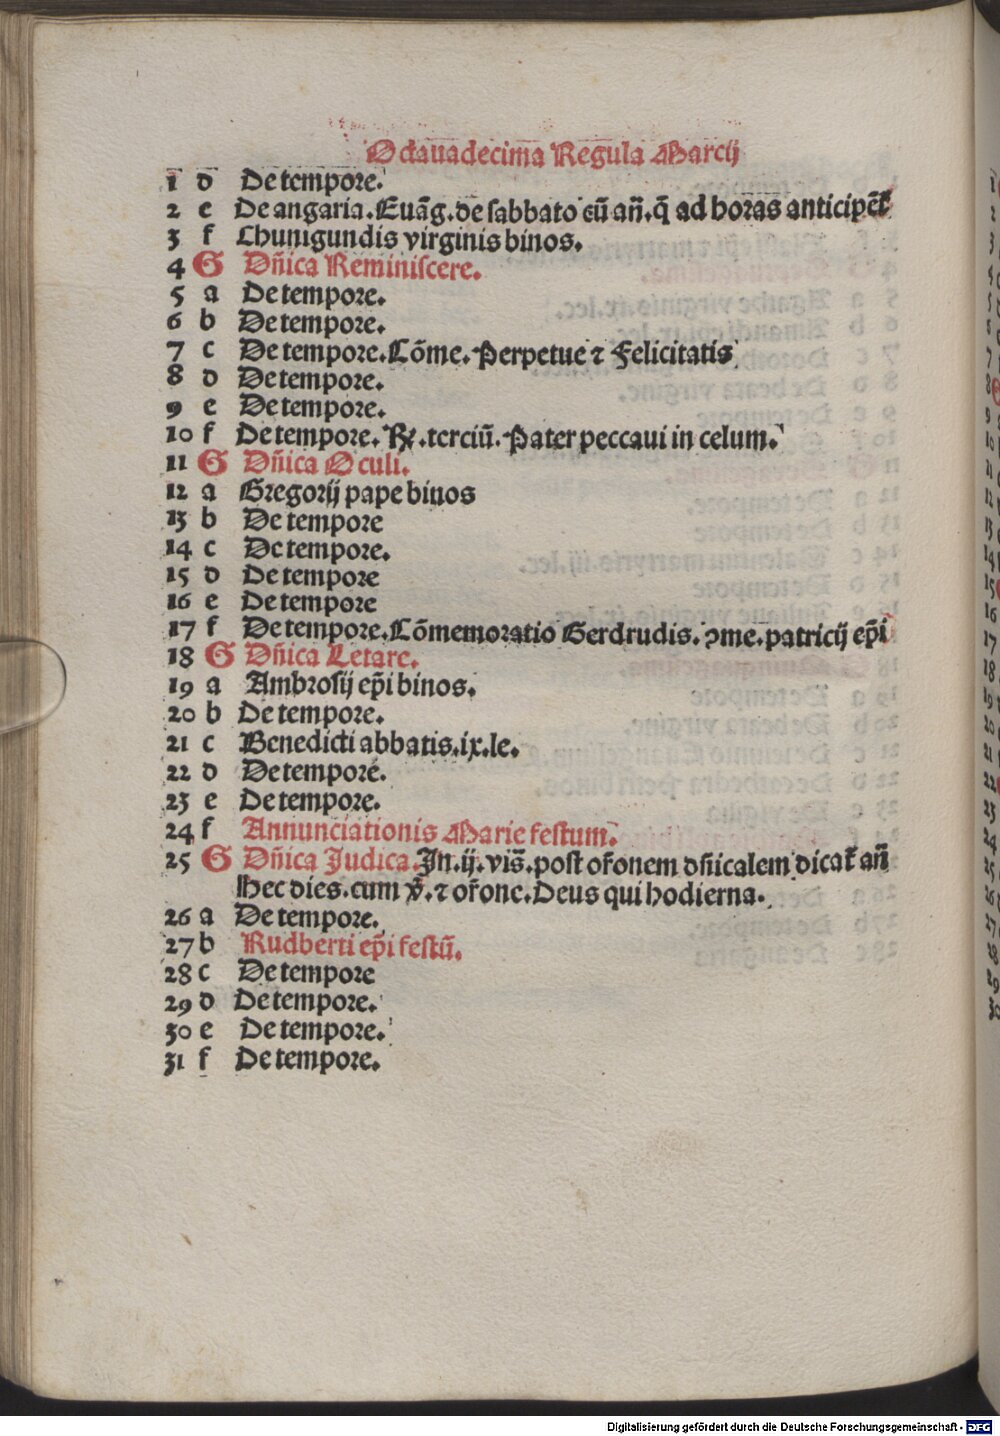 Octauadecima Regula Marcij
1 d De tempore.
2 e De angaria. Euāg. de sabbato cū an̄. q̄ ad horas anticipēt
3 f Chunigundis virginis binos.
4 G Dn̄ica Reminiscere.
5 a De tempore.
6 b De tempore.
7 c De tempore. Cōme. Perpetue ⁊ Felicitatis
8 d De tempore.
9 e De tempore.
10 f De tempore. ℞. terciū. Pater peccaui in celum.
11 G Dn̄ica Oculi.
12 a Gregorij pape binos
13 b De tempore
14 c De tempore.
15 d De tempore
16 e De tempore
17 f De tempore. Cōmemoratio Gerdrudis. ꝯme. patricij ep̄i
18 G Dn̄ica Letare.
19 a Ambrosij ep̄i binos.
20 b De tempore.
21 c Benedicti abbatis. ix. le.
22 d De tempore.
23 e De tempore.
24 f Annunciationis Marie festum.
25 G Dn̄ica Judica. In. ij. vis̄. post or̄onem dn̄icalem dicat̄ an̄
Hec dies. cum ℣. ⁊ or̄one. Deus qui hodierna.
26 a De tempore.
27 b Rudberti ep̄i festū.
28 c De tempore
29 d De tempore.
30 e De tempore.
31 f De tempore.
Digitalisierung gefördert durch die Deutsche Forschungsgemeinschaft - DFG